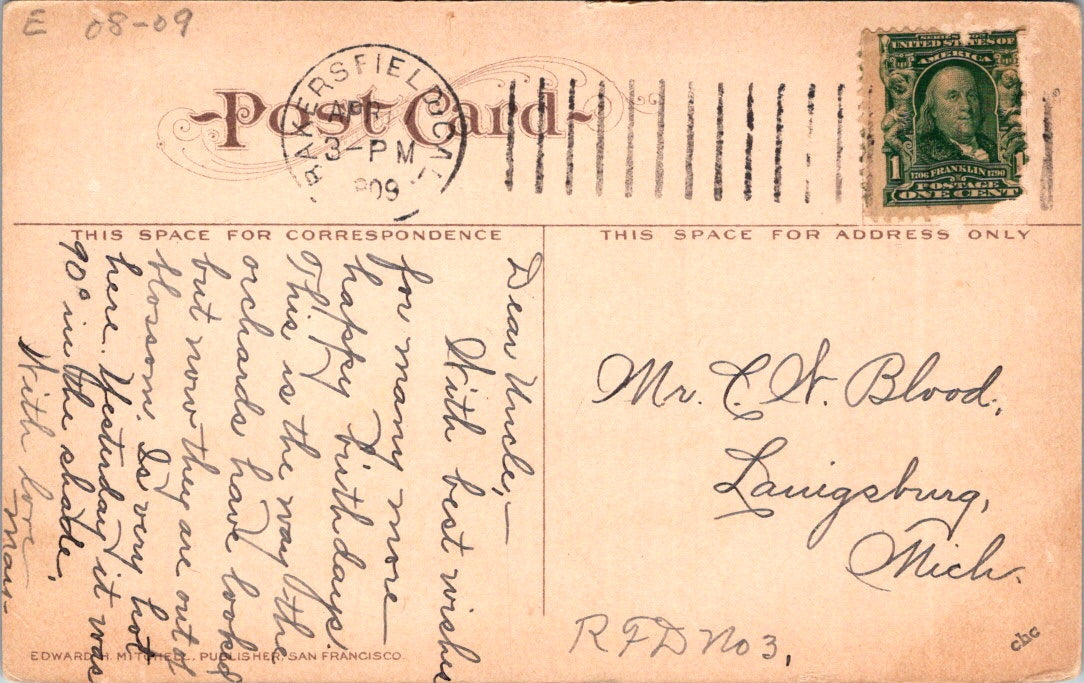 E 08-09
Post Card
BAKERSFIELD, CAL.
APR
3-PM
1909
SERIES 1902
UNITED STATES OF
AMERICA
1 1706 FRANKLIN 1790 1
POSTAGE
ONE CENT
THIS SPACE FOR CORRESPONDENCE
THIS SPACE FOR ADDRESS ONLY
Dear Uncle,—
With best wishes
for many more
happy birthdays.
This is the way the
orchards have looked
but now they are out of
blossom. Is very hot
here. Yesterday it was
90° in the shade.
With love
Mr. C. W. Blood,
Laingsburg,
Mich.
RFD No 3.
EDWARD H. MITCHELL, PUBLISHER, SAN FRANCISCO.
chc